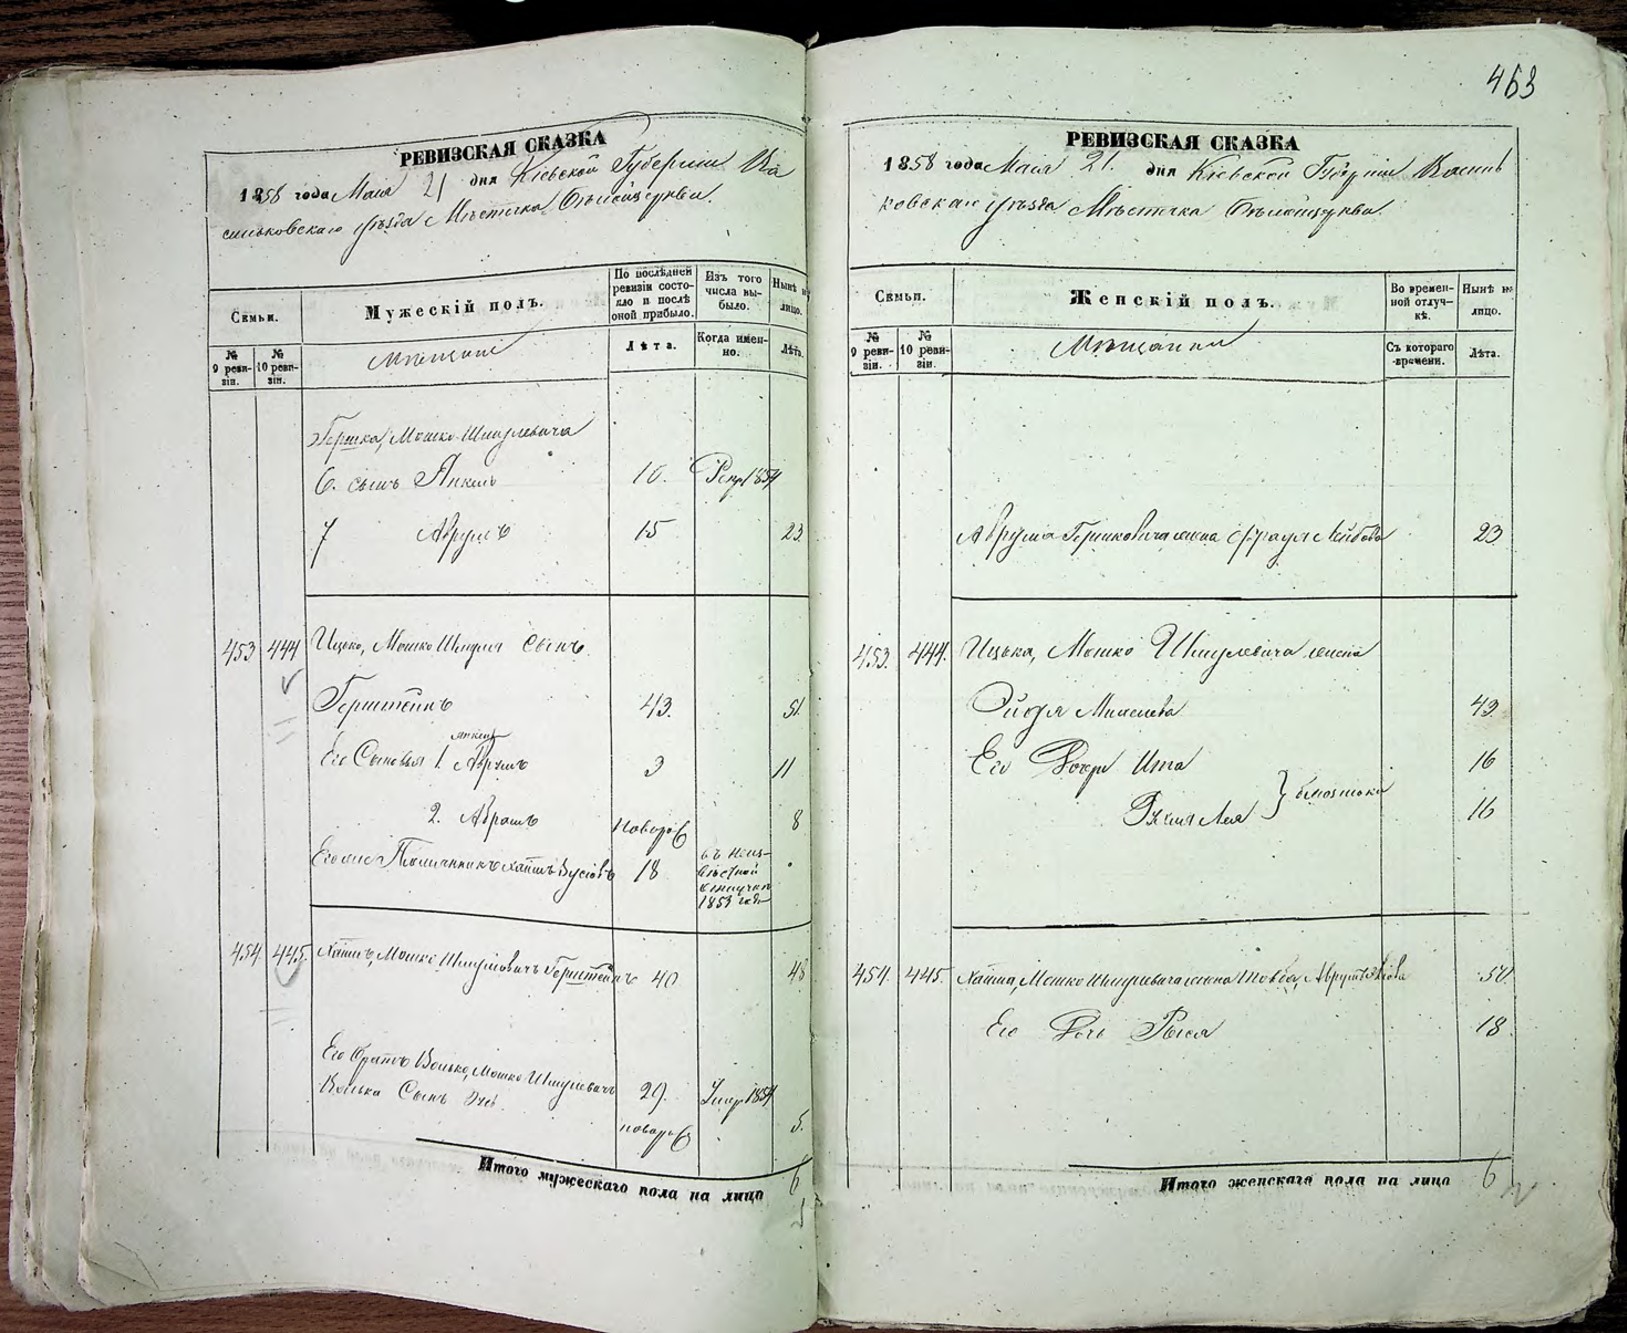 463
РЕВИЗСКАЯ СКАЗКА
1858 года Мая 21 дня Кіевской Губерніи Ва
сильковскаго уѣзда Мѣстечка Бѣлойцеркви.
Семьи.
Мужескій полъ.
По послѣдней ревизіи состояло и послѣ оной прибыло.
Изъ того числа выбыло.
Нынѣ на лицо.
№ 9 ревизіи.
№ 10 ревизіи.
Мѣщане
Лѣта.
Когда именно.
Лѣта.
Гершка, Мошко Шмулевича
6. сынъ Янкель 10. 1854
7 Аврумъ 15 23
453 444 Ицько, Мошко Шмуля сынъ
Герштейнъ 43. 51
Его Сыновья 1. Аврумъ 3 11
2. Абрамъ новорож 8
Его же Племянникъ Хаимъ 18 въ неиз-
вѣстной
отлучкѣ
1853 года
454 445. Хаимъ, Мошко Шмулевичъ Герштейнъ 40 48
Его братъ Волько, Мошко Шмулевичъ 29. Умер 1854
Волька Сынъ новорож 5.
Итого мужескаго пола на лицо 6
РЕВИЗСКАЯ СКАЗКА
1858 года Мая 21. дня Кіевской Губерніи Василь
ковскаго уѣзда Мѣстечка Бѣлойцеркви.
Семьи.
Женскій полъ.
Во временной отлучкѣ.
Нынѣ на лицо.
№ 9 ревизіи.
№ 10 ревизіи.
Мѣщанки
Съ котораго времени.
Лѣта.
Аврума Гершковича жена Лейбова 23
453. 444. Ицька, Мошко Шмулевича жена
49
Его Дочери Ита 16
близнюки
Лея 16
454. 445. Хаима, Мошко Шмулевича жена 50
Его Дочь Рыся 18
Итого женскаго пола на лицо 6